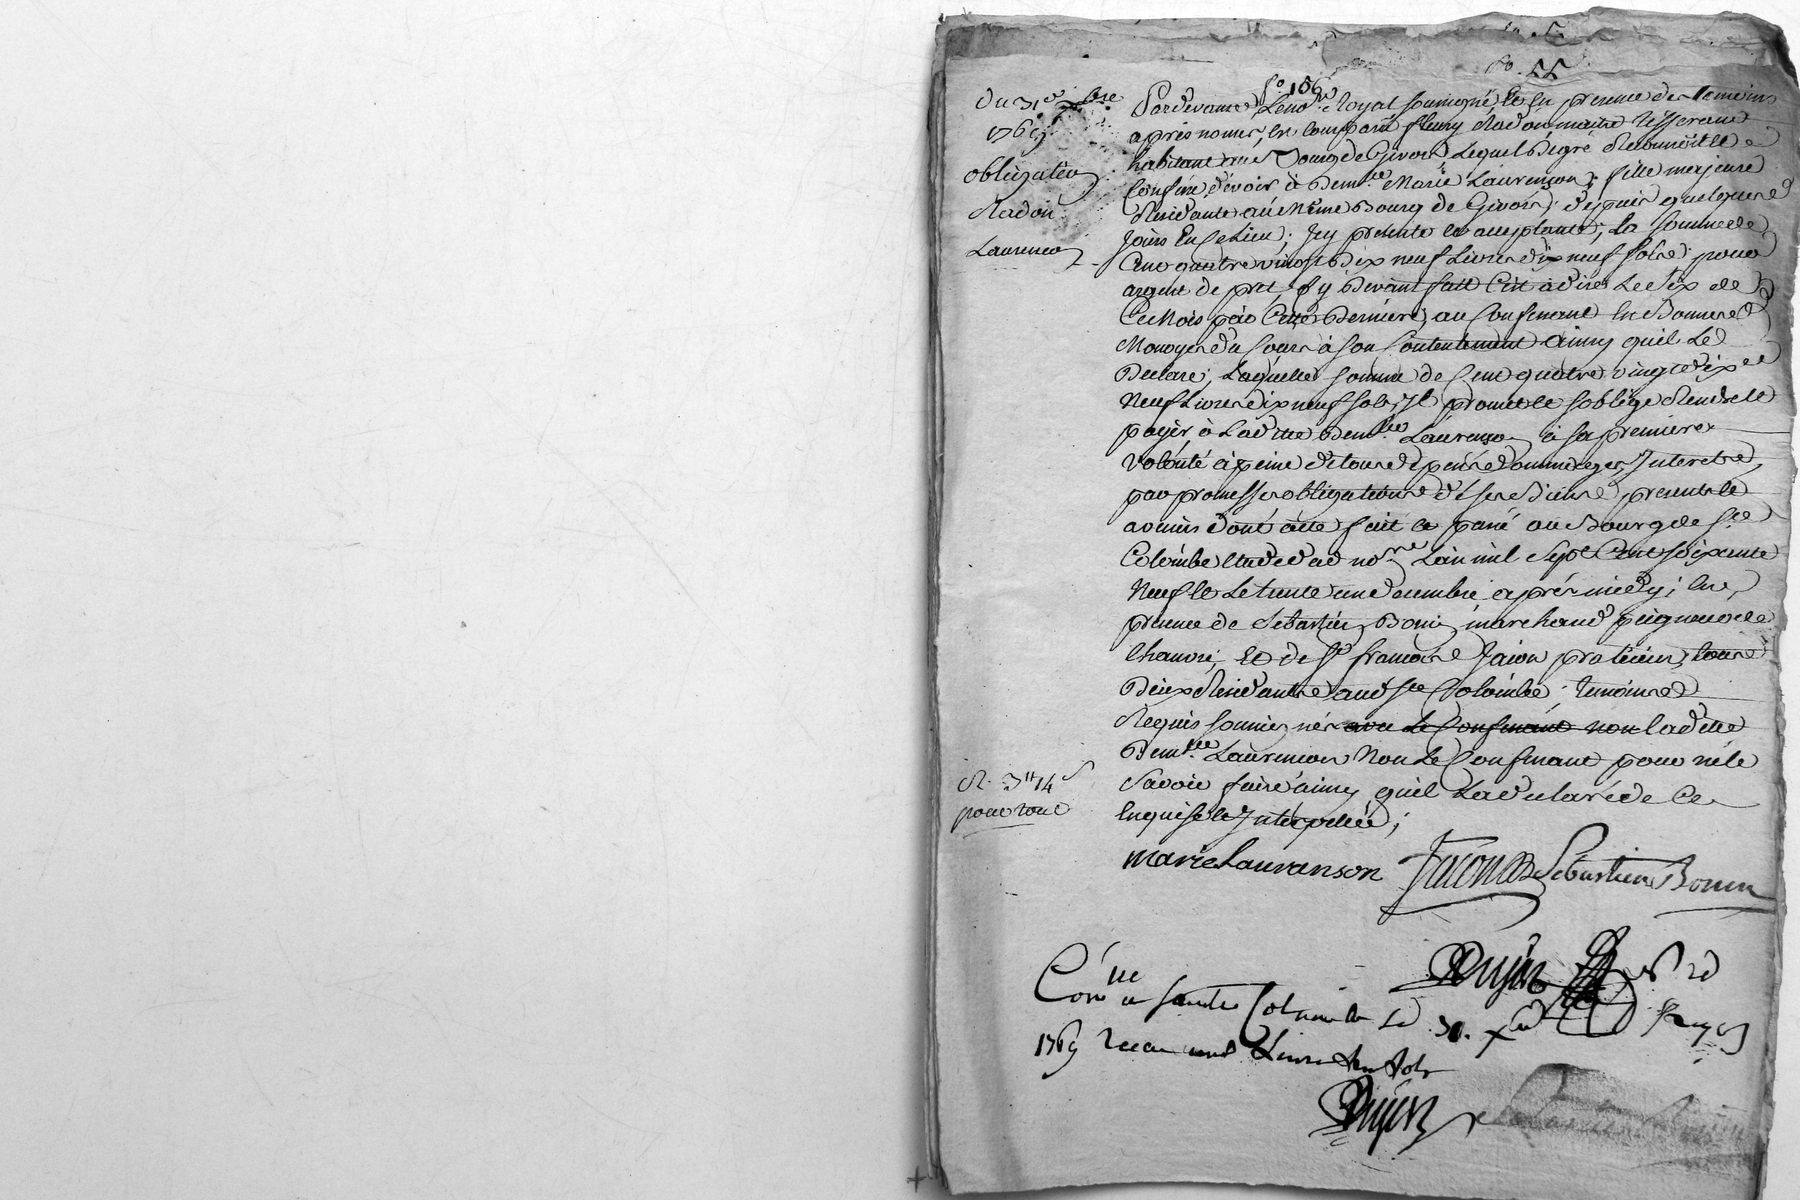 fo. 55
fo 156
Du 31e xbre
1769
obligation
Radon
Laurenson
Pardevant Le no.re Royal soussigné et En presence des temoins
apres nommés, est comparû fleury Radon maitre tisserand
habitant au Bourg de Givors Lequel de gré Reconnoit et
Confesse devoir à Demlle Marie Laurenson, fille majeure
Residante au même Bourg de Givors, depuis quelques
jours En ce Lieu; Icy presente et acceptante, La somme de
Cent quatre vingt dix neuf Livres dix neuf sols pour
argent de pret Cy devant fait C'est à dire Le six de
Ce Mois par Cette Derniere, au Confessant En Bonnes
Monoyes du Cours à son Contentement ainsy quil Le
Declare; Laquelle somme de Cent quatre vingt dix
Neuf Livres dix neuf sols, Il promet et s'oblige Rendre et
payer à Laditte Demlle Laurenson à sa premiere
Volonté à peine de tous depens dommages Interets,
par promesses obligations de ses Biens presents et
avenirs dont acte fait et passé au Bourg de Ste
Colombe Etude dud no.re L'an mil Sept Cent soixante
Neuf et Le trente un decembre après midy; En
presence de Sebastien Bonin marchand peigneur de
Chanvre, Et de Sr françois Jacon praticien, tous
Deux Residants aud Ste Colombe, temoins
Requis soussignés avec Le Confessant non laditte
Demlle Laurenson Non Le Confessant pour ne le
Savoir faire ainsy quil L'a declaré de Ce
Enquis et Interpellé;
R. 3# 14s
pour tout
marie Lauranson Jacon Sebastien Bonin
Dujon
Con.lle a Sainte Colombe Le 31. xbre
1769 Recu une Livre dix sols
Dujon